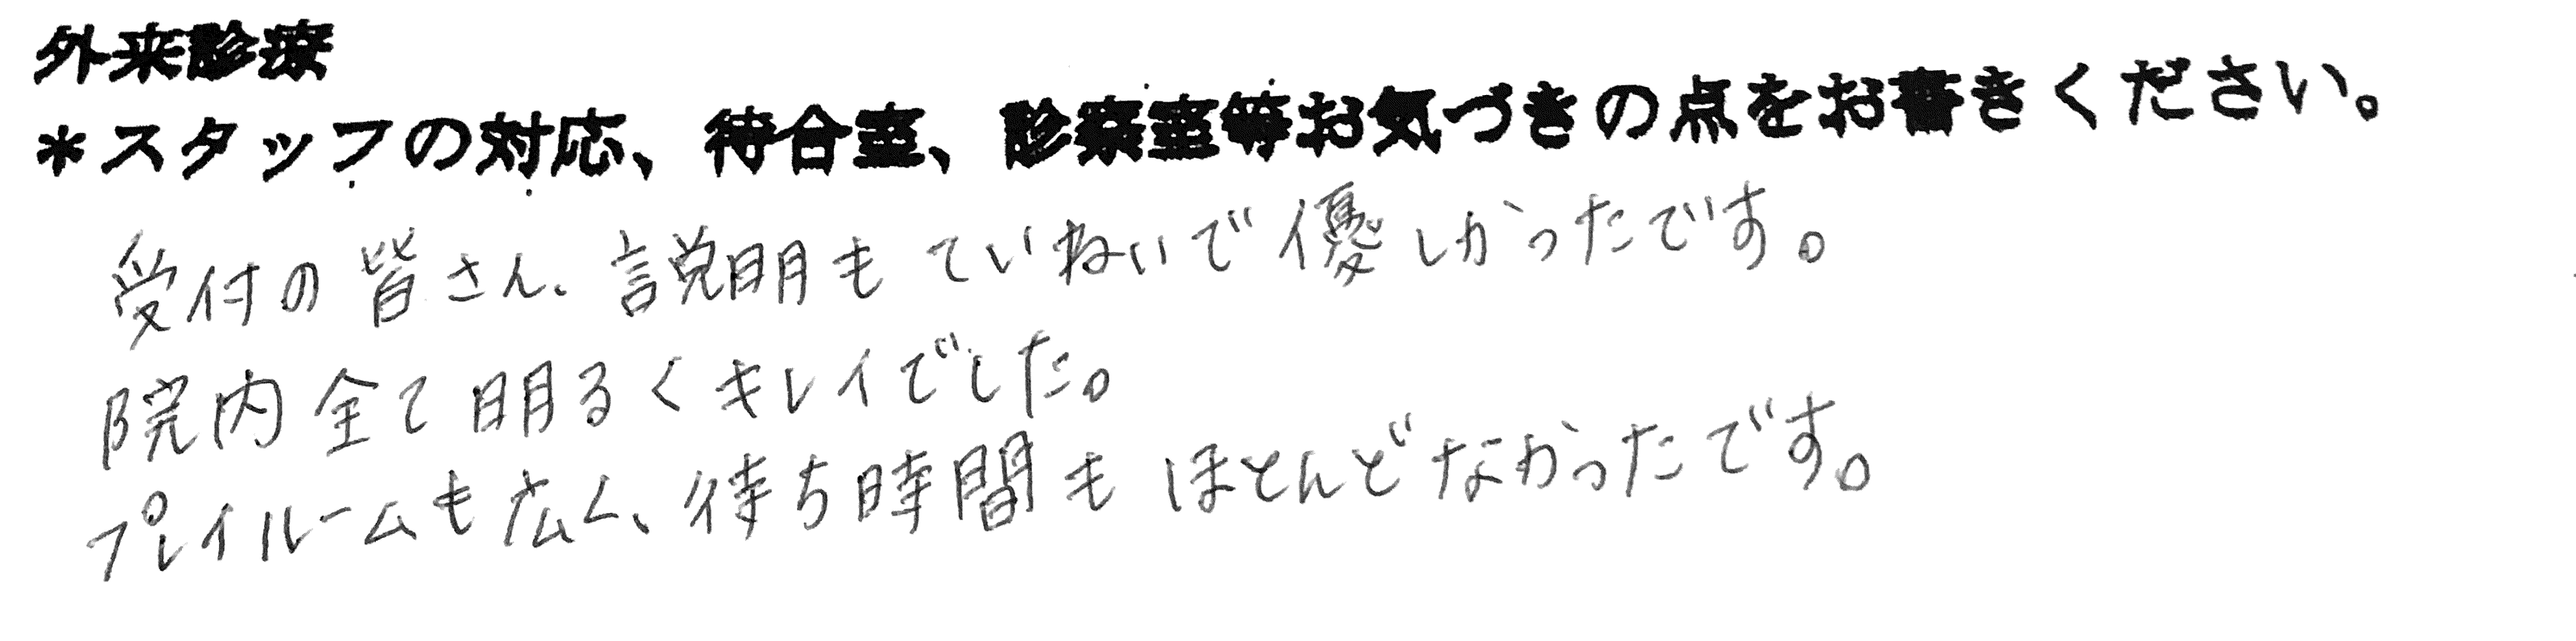 外来診療
＊スタッフの対応、待合室、診察室等お気づきの点をお書きください。
受付の皆さん、説明もていねいで優しかったです。
院内全て明るくキレイでした。
プレイルームも広く、待ち時間もほとんどなかったです。